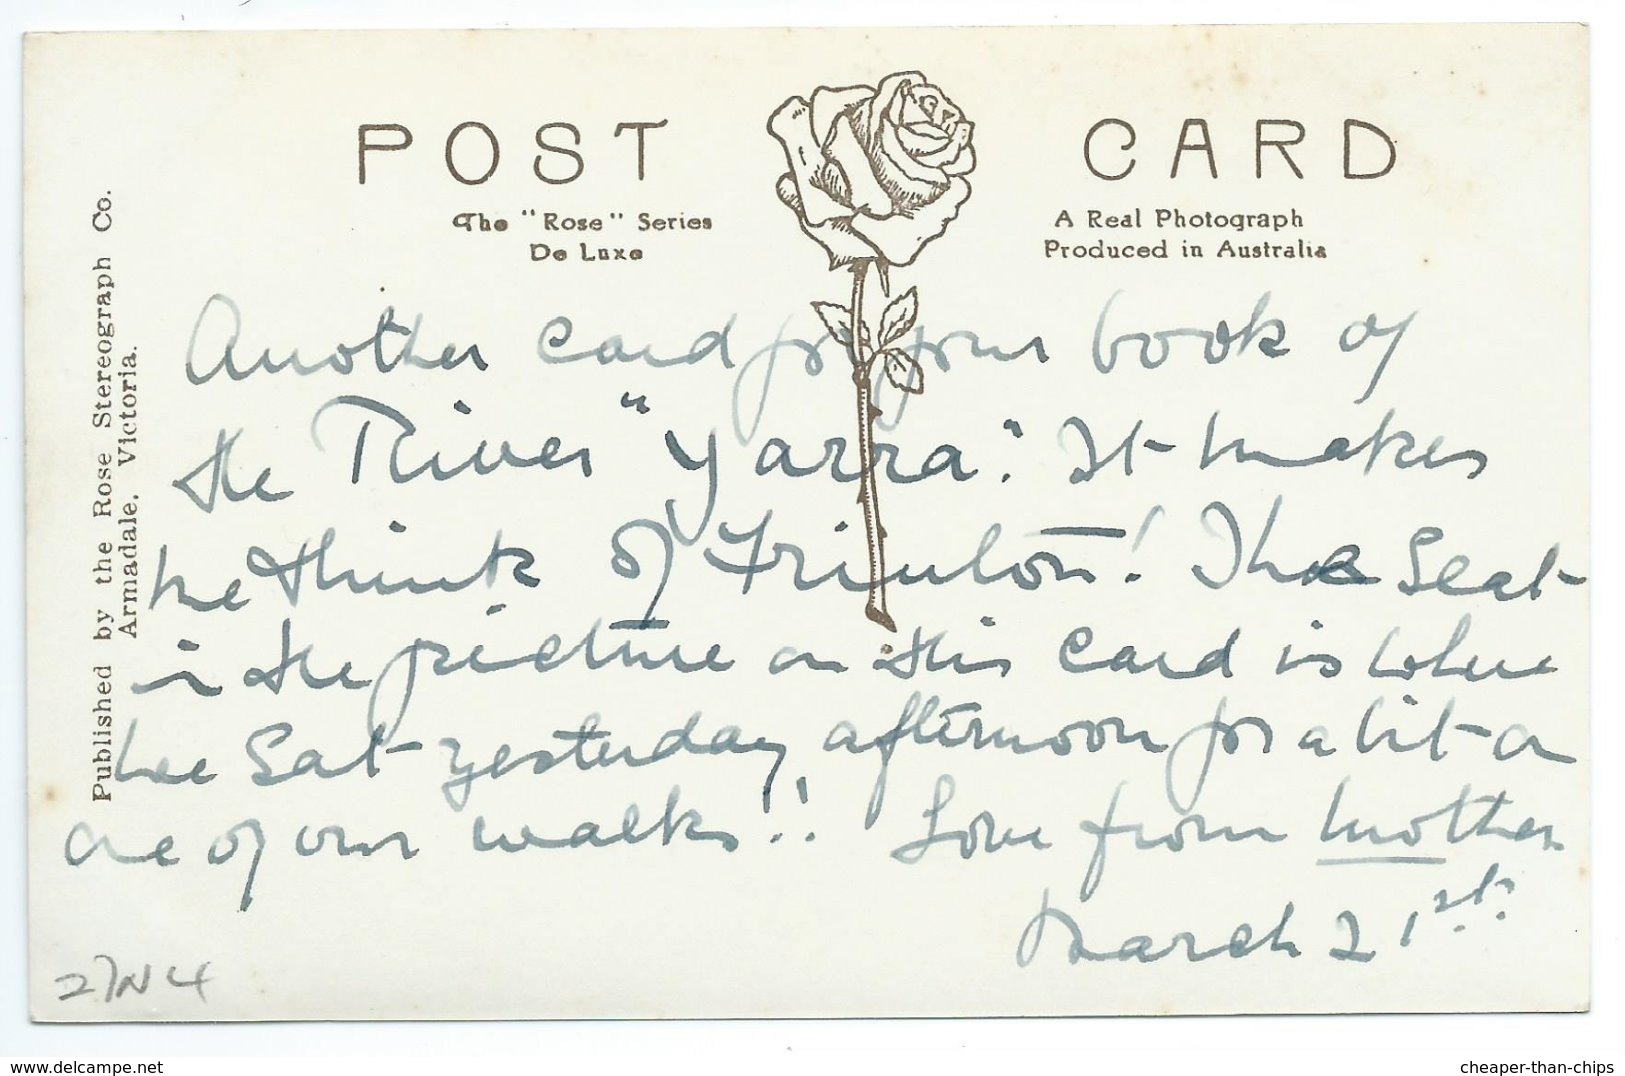 POST CARD
The "Rose" Series
De Luxe
A Real Photograph
Produced in Australia
Published by the Rose Stereograph Co.
Armadale. Victoria.
Another card for your book of
the River "Yarra". It makes
me think of Frinton! The Seat
in the picture on this card is where
we sat yesterday afternoon for a bit on
one of our walks!! Love from Mother
March 21st.
27N4
delcampe.net
cheaper-than-chips